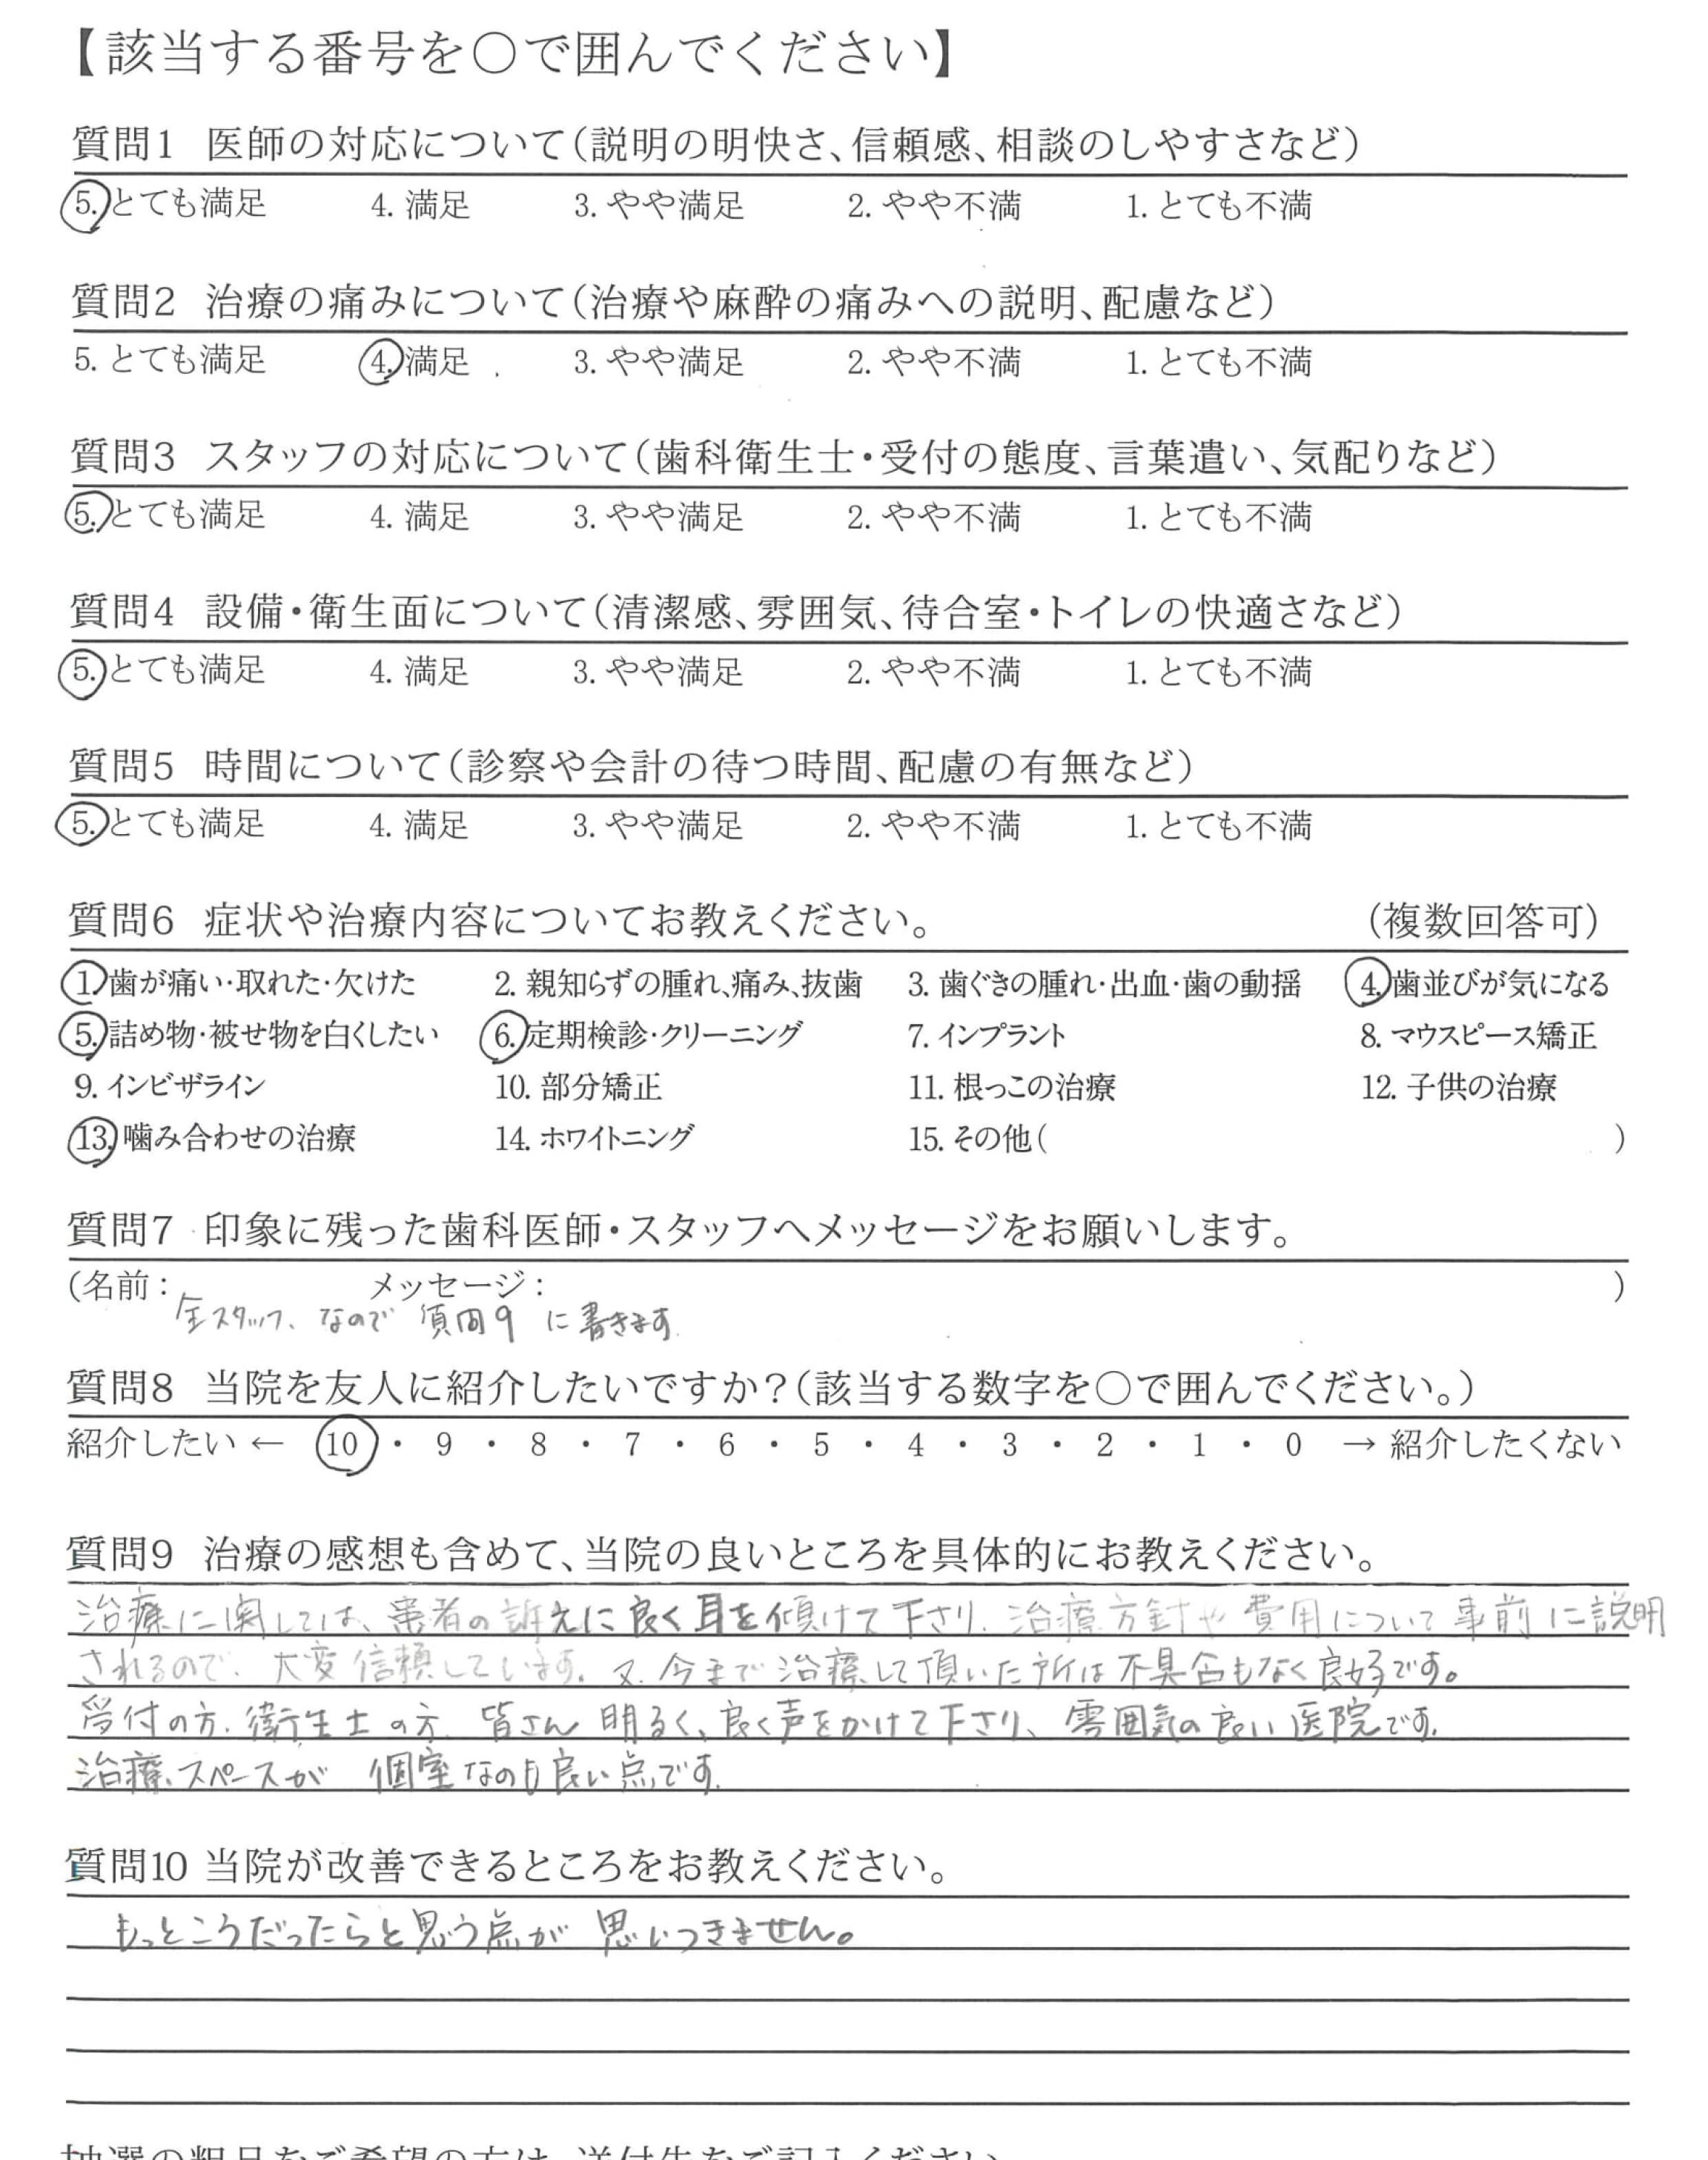 【該当する番号を○で囲んでください】
質問1 医師の対応について(説明の明快さ、信頼感、相談のしやすさなど)
5. とても満足 4. 満足 3. やや満足 2. やや不満 1. とても不満
質問2 治療の痛みについて(治療や麻酔の痛みへの説明、配慮など)
5. とても満足 4. 満足 3. やや満足 2. やや不満 1. とても不満
質問3 スタッフの対応について(歯科衛生士・受付の態度、言葉遣い、気配りなど)
5. とても満足 4. 満足 3. やや満足 2. やや不満 1. とても不満
質問4 設備・衛生面について(清潔感、雰囲気、待合室・トイレの快適さなど)
5. とても満足 4. 満足 3. やや満足 2. やや不満 1. とても不満
質問5 時間について(診察や会計の待つ時間、配慮の有無など)
5. とても満足 4. 満足 3. やや満足 2. やや不満 1. とても不満
質問6 症状や治療内容についてお教えください。 (複数回答可)
1. 歯が痛い・取れた・欠けた 2. 親知らずの腫れ、痛み、抜歯 3. 歯ぐきの腫れ・出血・歯の動揺 4. 歯並びが気になる
5. 詰め物・被せ物を白くしたい 6. 定期検診・クリーニング 7. インプラント 8. マウスピース矯正
9. インビザライン 10. 部分矯正 11. 根っこの治療 12. 子供の治療
13. 噛み合わせの治療 14. ホワイトニング 15. その他( )
質問7 印象に残った歯科医師・スタッフへメッセージをお願いします。
(名前: メッセージ: )
全スタッフ、なので 質問9 に書きます
質問8 当院を友人に紹介したいですか?(該当する数字を○で囲んでください。)
紹介したい ← 10 ・ 9 ・ 8 ・ 7 ・ 6 ・ 5 ・ 4 ・ 3 ・ 2 ・ 1 ・ 0 → 紹介したくない
質問9 治療の感想も含めて、当院の良いところを具体的にお教えください。
治療に関しては、患者の訴えに良く耳を傾けて下さり、治療方針や費用について事前に説明
されるので、大変信頼しています。又、今まで治療して頂いた所は不具合もなく良好です。
受付の方、衛生士の方、皆さん 明るく、良く声をかけて下さり、雰囲気の良い医院です。
治療、スペースが 個室なのも良い点です。
質問10 当院が改善できるところをお教えください。
もっとこうだったらと思う点が 思いつきません。
抽選の粗品をご希望の方は、送付先をご記入ください。